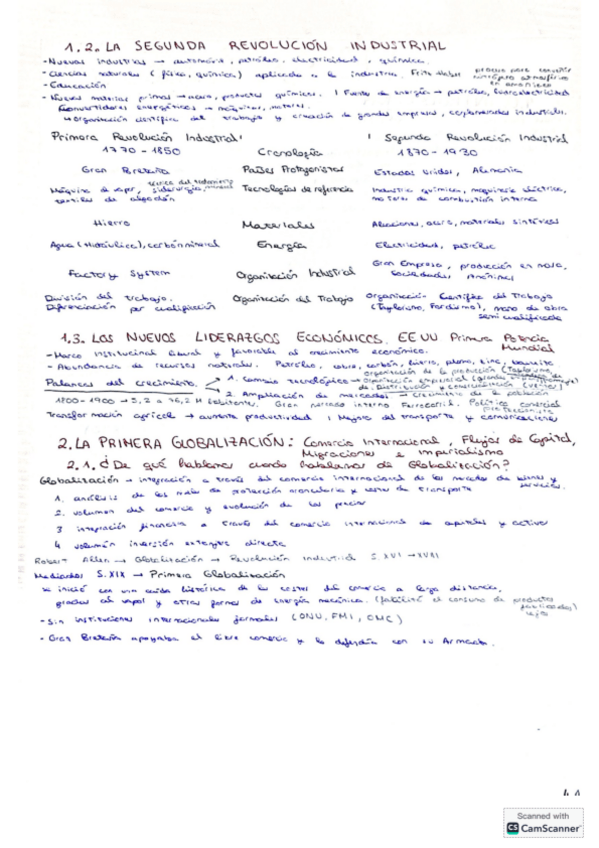 1.2. LA SEGUNDA REVOLUCIÓN INDUSTRIAL
- Nuevas industrias → automóvil, petróleo, electricidad, química.
- Ciencias naturales (física, química) aplicadas a la industria. Fritz Haber proceso para convertir nitrógeno atmosférico en amoniaco
- Educación
- Nuevas materias primas → acero, productos químicos. | Fuente de energía → petróleo, hidroelectricidad
Convertidores energéticos → máquinas, motores.
↳ organización científica del trabajo y creación de grandes empresas, conglomerados industriales.
Primera Revolución Industrial Segunda Revolución Industrial
1770 - 1850 Cronología 1870 - 1930
Gran Bretaña Países Protagonistas Estados Unidos, Alemania
Máquina de vapor, siderurgia, textiles de algodón Tecnologías de referencia Industria química, maquinaria eléctrica, motores de combustión interna
Hierro Materiales Aleaciones, acero, materiales sintéticos
Agua (Hidráulica), carbón mineral Energía Electricidad, petróleo
Factory System Organización Industrial Gran Empresa, producción en masa, Sociedades Anónimas
División del trabajo. Diferenciación por cualificación Organización del Trabajo Organización Científica del Trabajo (Taylorismo, Fordismo), mano de obra semicualificada
1.3. LOS NUEVOS LIDERAZGOS ECONÓMICOS. EEUU Primera Potencia Mundial
- Marco institucional liberal y favorable al crecimiento económico.
- Abundancia de recursos naturales. Petróleo, cobre, carbón, hierro, plomo, zinc, bauxita
Palancas del crecimiento. → 1. Cambio tecnológico → organización de la producción (Taylorismo, organización empresarial
de distribución y comunicación
→ 2. Ampliación de mercados → Crecimiento de la población
1800 - 1900 → 5,2 a 76,2 M habitantes. Gran mercado interno Ferrocarril. Política comercial proteccionista
Transformación agrícola → aumenta productividad | Mejora del transporte y comunicaciones
2. LA PRIMERA GLOBALIZACIÓN: Comercio Internacional, Flujos de Capital, Migraciones e Imperialismo
2.1. ¿De qué hablamos cuando hablamos de Globalización?
Globalización → integración a través del comercio internacional de los mercados de bienes y servicios.
1. análisis de los niveles de protección arancelaria y costes de transporte
2. volumen del comercio y evolución de los precios
3 integración financiera a través del comercio internacional de capitales y activos
4 volumen inversión extranjera directa
Robert Allen → Globalización → Revolución Industrial S. XVI → XVIII
Mediados S. XIX → Primera Globalización
se inició con una caída histórica de los costes del comercio a larga distancia,
gracias al vapor y otras formas de energía mecánica. (facilitó el consumo de productos fabricados lejos)
- Sin instituciones internacionales formales (ONU, FMI, OMC)
- Gran Bretaña apoyaba el libre comercio y lo defendía con su Armada.
Scanned with
CS CamScanner